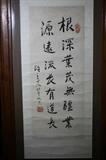 根深葉茂無疆業
源遠流長有道長